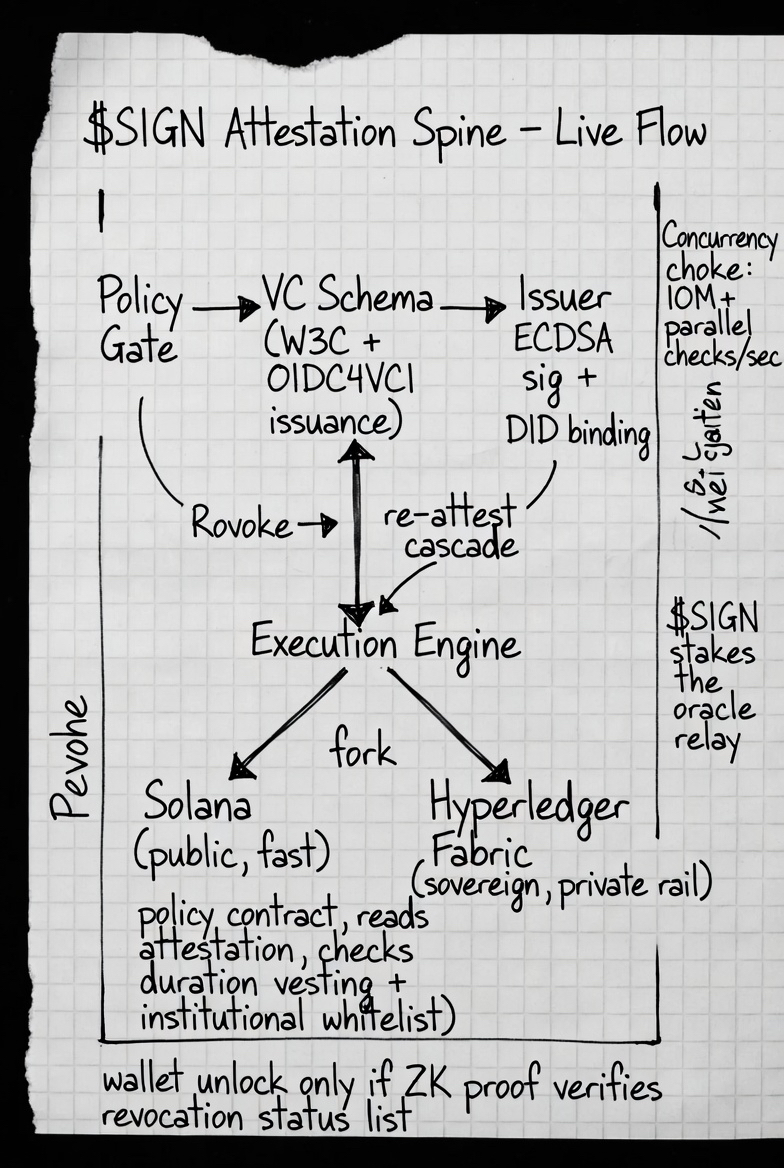 $SIGN Attestation Spine – Live Flow
Policy
Gate
VC Schema
(W3C +
OIDC4VCI
issuance)
Issuer
ECDSA
sig +
DID binding
Concurrency
choke:
10M+
parallel
checks/sec
Rovoke
re-attest
cascade
Execution Engine
$SIGN
stakes
the
oracle
relay
Pevohe
fork
Solana
(public, fast)
Hyperledger
Fabric
(sovereign, private rail)
policy contract, reads
attestation, checks
duration vesting +
institutional whitelist)
wallet unlock only if ZK proof verifies
revocation status list